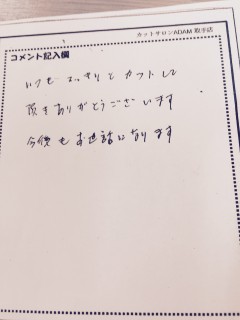 カットサロンADAM 取手店
コメント記入欄
いつも すっきりと カットして
頂き ありがとうございます
今後も お世話になります